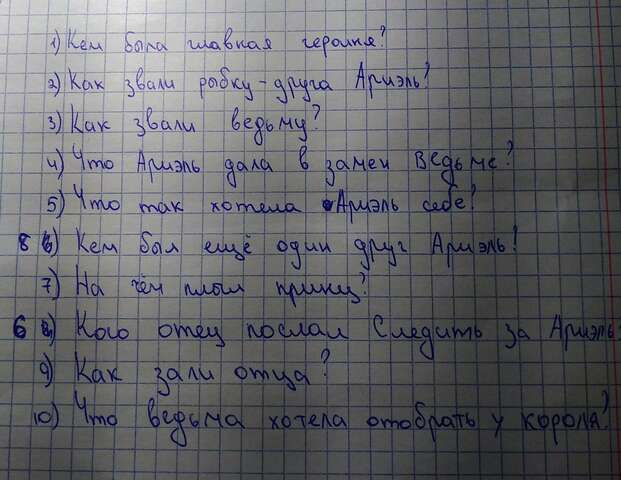 1) Кем была главная героиня?
2) Как звали рыбку-друга Ариэль?
3) Как звали ведьму?
4) Что Ариэль дала в замен Ведьме?
5) Что так хотела Ариэль себе?
8) Кем был ещё один друг Ариэль?
7) На чём плыл принц?
6) Кого отец послал Следить за Ариэль
9) Как зали отца?
10) Что ведьма хотела отобрать у короля?